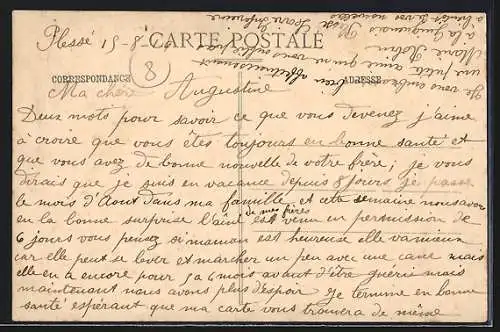 Plessé 15-8-
CARTE POSTALE
CORRESPONDANCE
ADRESSE
8
Ma chère Augustine
Deux mots pour savoir ce que vous devenez j'aime
à croire que vous êtes toujours en bonne santé et
que vous avez de bonne nouvelle de votre frère; je vous
dirais que je suis en vacance depuis 8 jours je passe
le mois d'Aout dans ma famille et cette semaine nous avons
eu la bonne surprise l'ainé de mes frères est venu en permission de
6 jours vous pensez si maman est heureuse elle va mieux
car elle peut se lever et marcher un peu avec une canne mais
elle en a encore pour 5 a 6 mois avant d'être guérie mais
maintenant nous avons plus d'espoir Je termine en bonne
santé espérant que ma carte vous trouvera de même
Je vous embrasse bien affectueusement
une petite amie qui ne vous oublie pas
Marie
à la Plessé
Loire inférieure
à bientôt de vos nouvelles